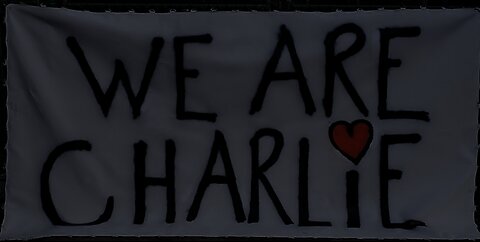 WE ARE
CHARLiE